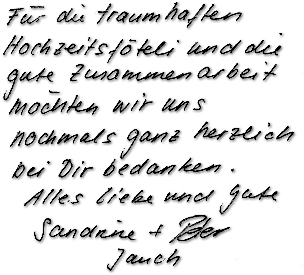 Für die traumhaften
Hochzeitsföteli und die
gute Zusammenarbeit
möchten wir uns
nochmals ganz herzlich
bei Dir bedanken.
Alles liebe und gute
Sandrine + Peter
Jauch